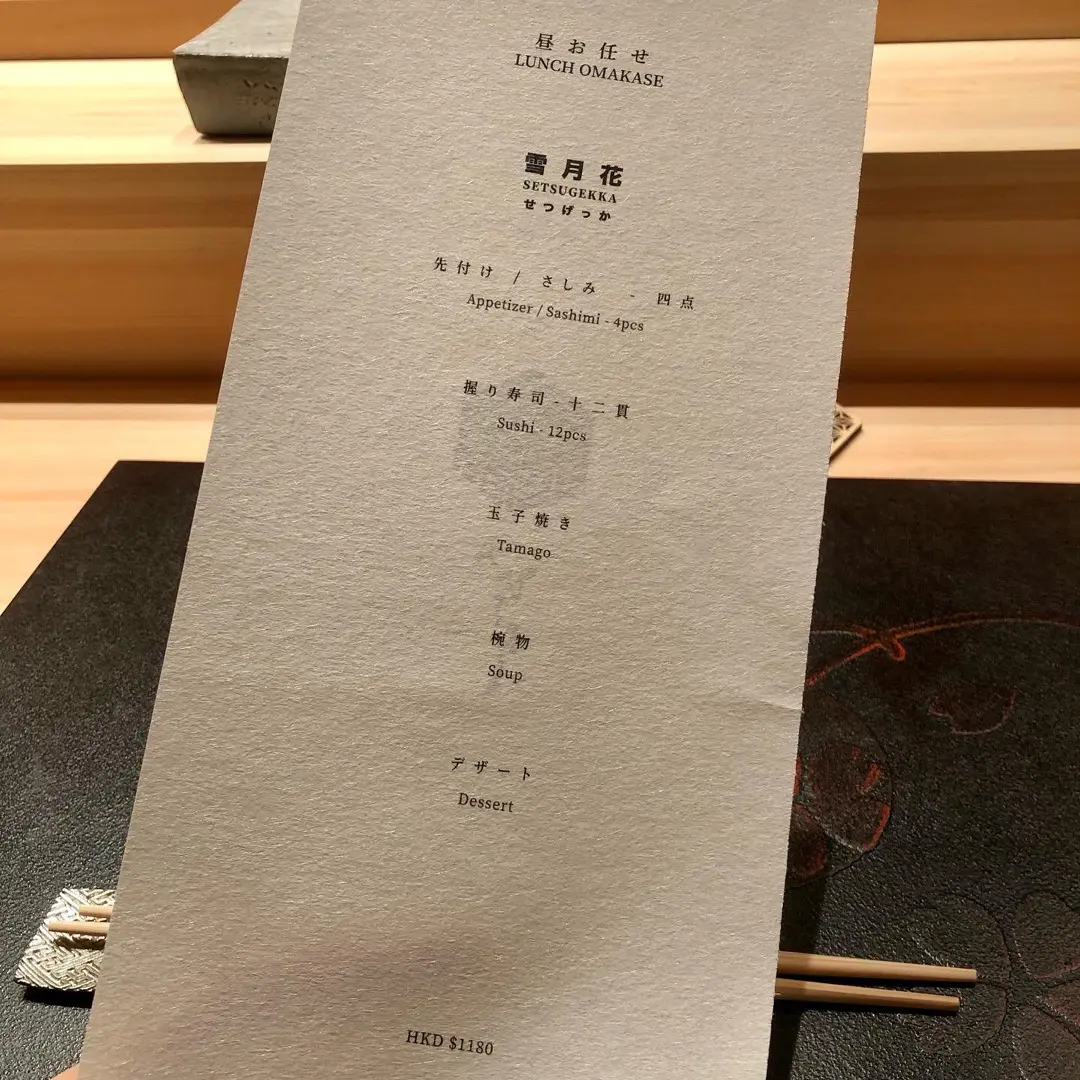 昼お任せ
LUNCH OMAKASE
雪月花
SETSUGEKKA
せつげっか
先付け / さしみ - 四点
Appetizer / Sashimi - 4pcs
握り寿司 - 十二貫
Sushi - 12pcs
玉子焼き
Tamago
椀物
Soup
デザート
Dessert
HKD $1180